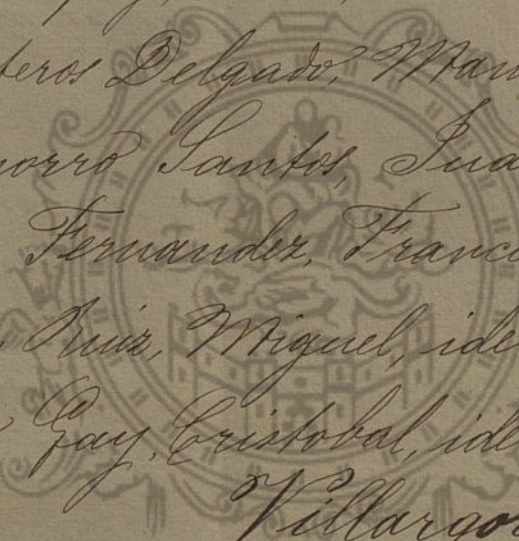 teros Delgado, Man
orro Santos, Jua
Fernandez, Franc
Ruiz, Miguel, ide
Gay, Cristobal, ide
Villargor